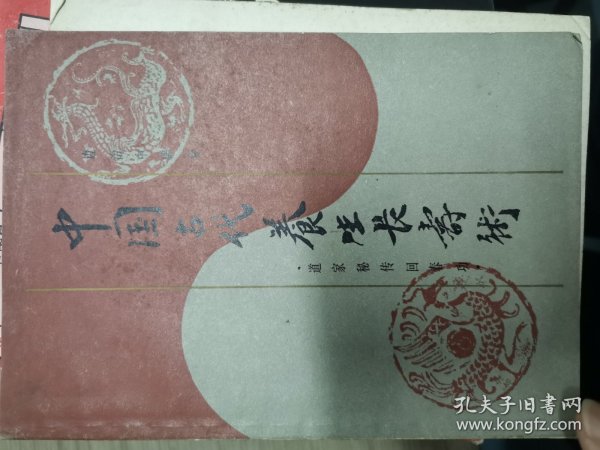 中国古代養生長壽術
·道家秘传回春功
孔夫子旧书网
www.kongfz.com